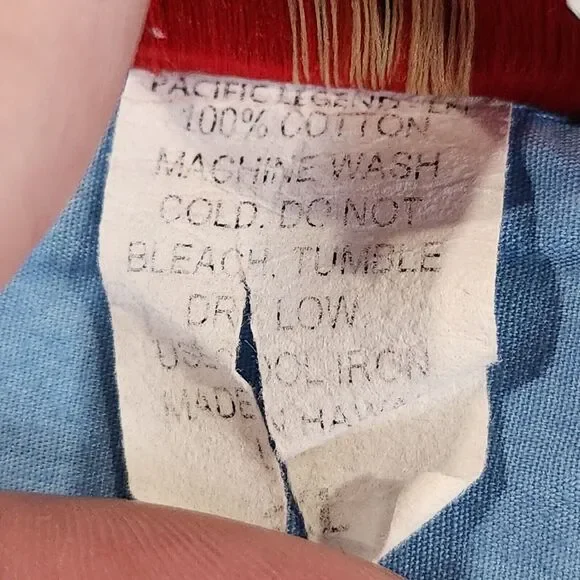 PACIFIC LEGEND
100% COTTON
MACHINE WASH
COLD. DO NOT
BLEACH. TUMBLE
DRY LOW.
IRON
MADE